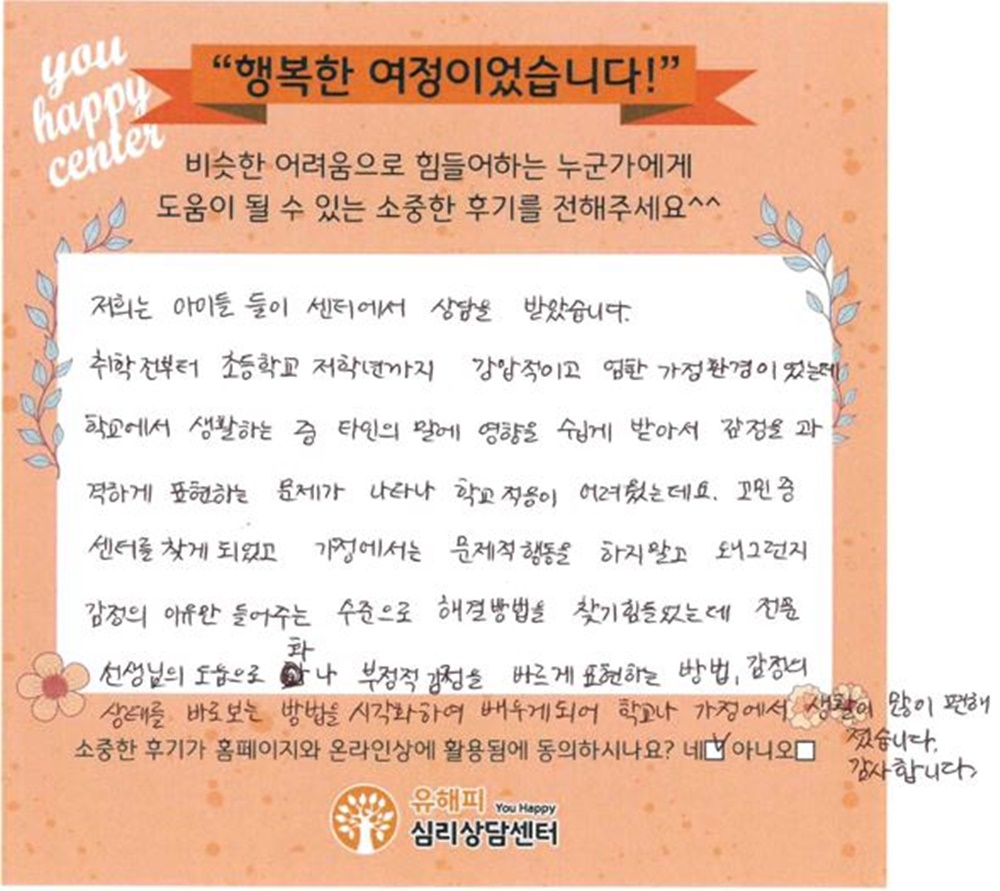 you
happy
center
“행복한 여정이었습니다!”
비슷한 어려움으로 힘들어하는 누군가에게
도움이 될 수 있는 소중한 후기를 전해주세요^^
저희는 아이들 둘이 센터에서 상담을 받았습니다.
취학전부터 초등학교 저학년까지 강압적이고 엄한 가정환경이 있는데
학교에서 생활하는 중 타인의 말에 영향을 쉽게 받아서 감정을 과
격하게 표현하는 문제가 나타나 학교적응이 어려웠는데요. 고민 중
센터를 찾게 되었고 가정에서는 문제적행동을 하지말고 왜그런지
감정의 이유만 들어주는 수준으로 해결방법을 찾기힘들었는데 전문
선생님의 도움으로 화나 부정적 감정을 바르게 표현하는 방법, 감정의
상태를 바로보는 방법을 시각화하여 배우게되어 학교나 가정에서 생활이 많이 편해
졌습니다.
감사합니다
소중한 후기가 홈페이지와 온라인상에 활용됨에 동의하시나요? 네☑ 아니오☐
유해피 You Happy
심리상담센터